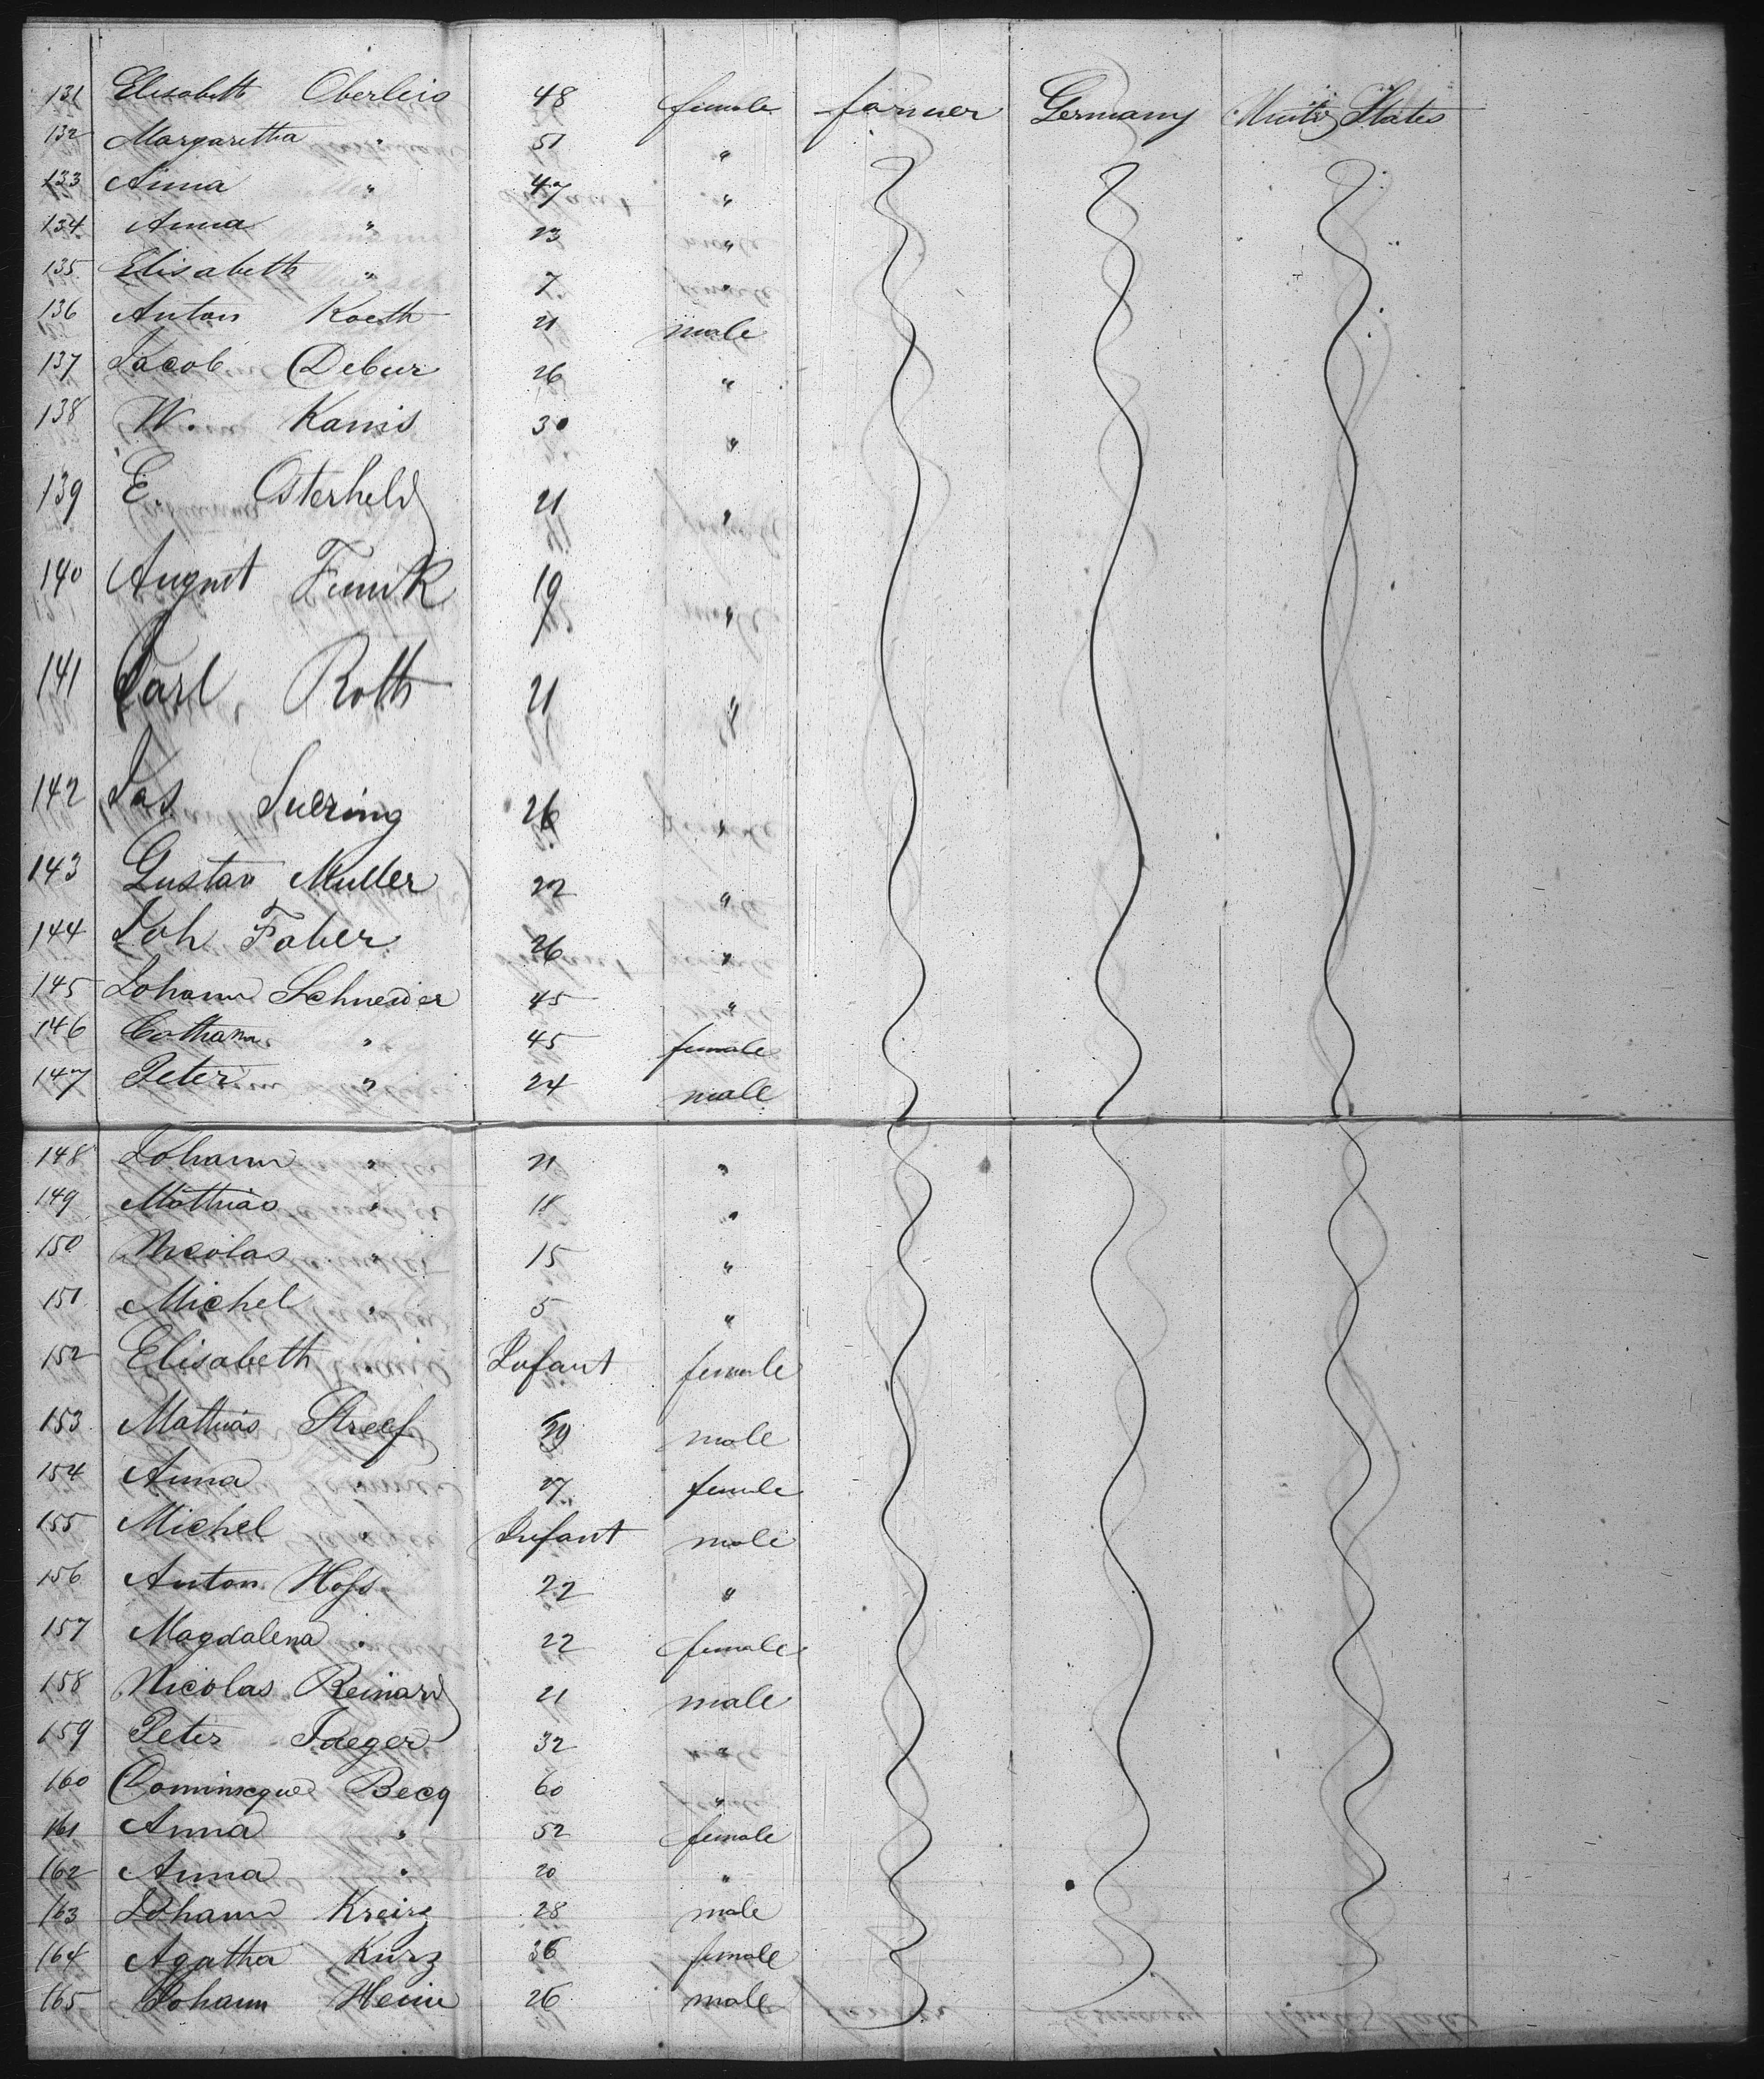 131 Elisabeth Oberleis 48 female farmer Germany United States
132 Margaretha " 51 "
133 Anna " 47 "
134 Anna " 23 "
135 Elisabeth " 7 "
136 Anton Koeth 21 male
137 Jacob Debur 26 "
138 W. Kanis 30 "
139 E. Osterheld 21 "
140 August Funk 19 "
141 Carl Roth 21 "
142 Jas Suering 26 "
143 Gustav Muller 22 "
144 Joh Faber 26 "
145 Johann Schneider 45 "
146 Cathar. " 45 female
147 Peter " 24 male
148 Johann " 21 "
149 Mathias " 18 "
150 Nicolas " 15 "
151 Michel " 5 "
152 Elisabeth " Infant female
153 Mathias Streef 29 male
154 Anna " 27 female
155 Michel " Infant male
156 Anton Hoss 22 "
157 Magdalena " 22 female
158 Nicolas Reinard 21 male
159 Peter Jaeger 32 "
160 Dominicque Becq 60 "
161 Anna " 52 female
162 Anna " 20 "
163 Johann Kreirz 28 male
164 Agatha Kurz 36 female
165 Johann Heini 26 male